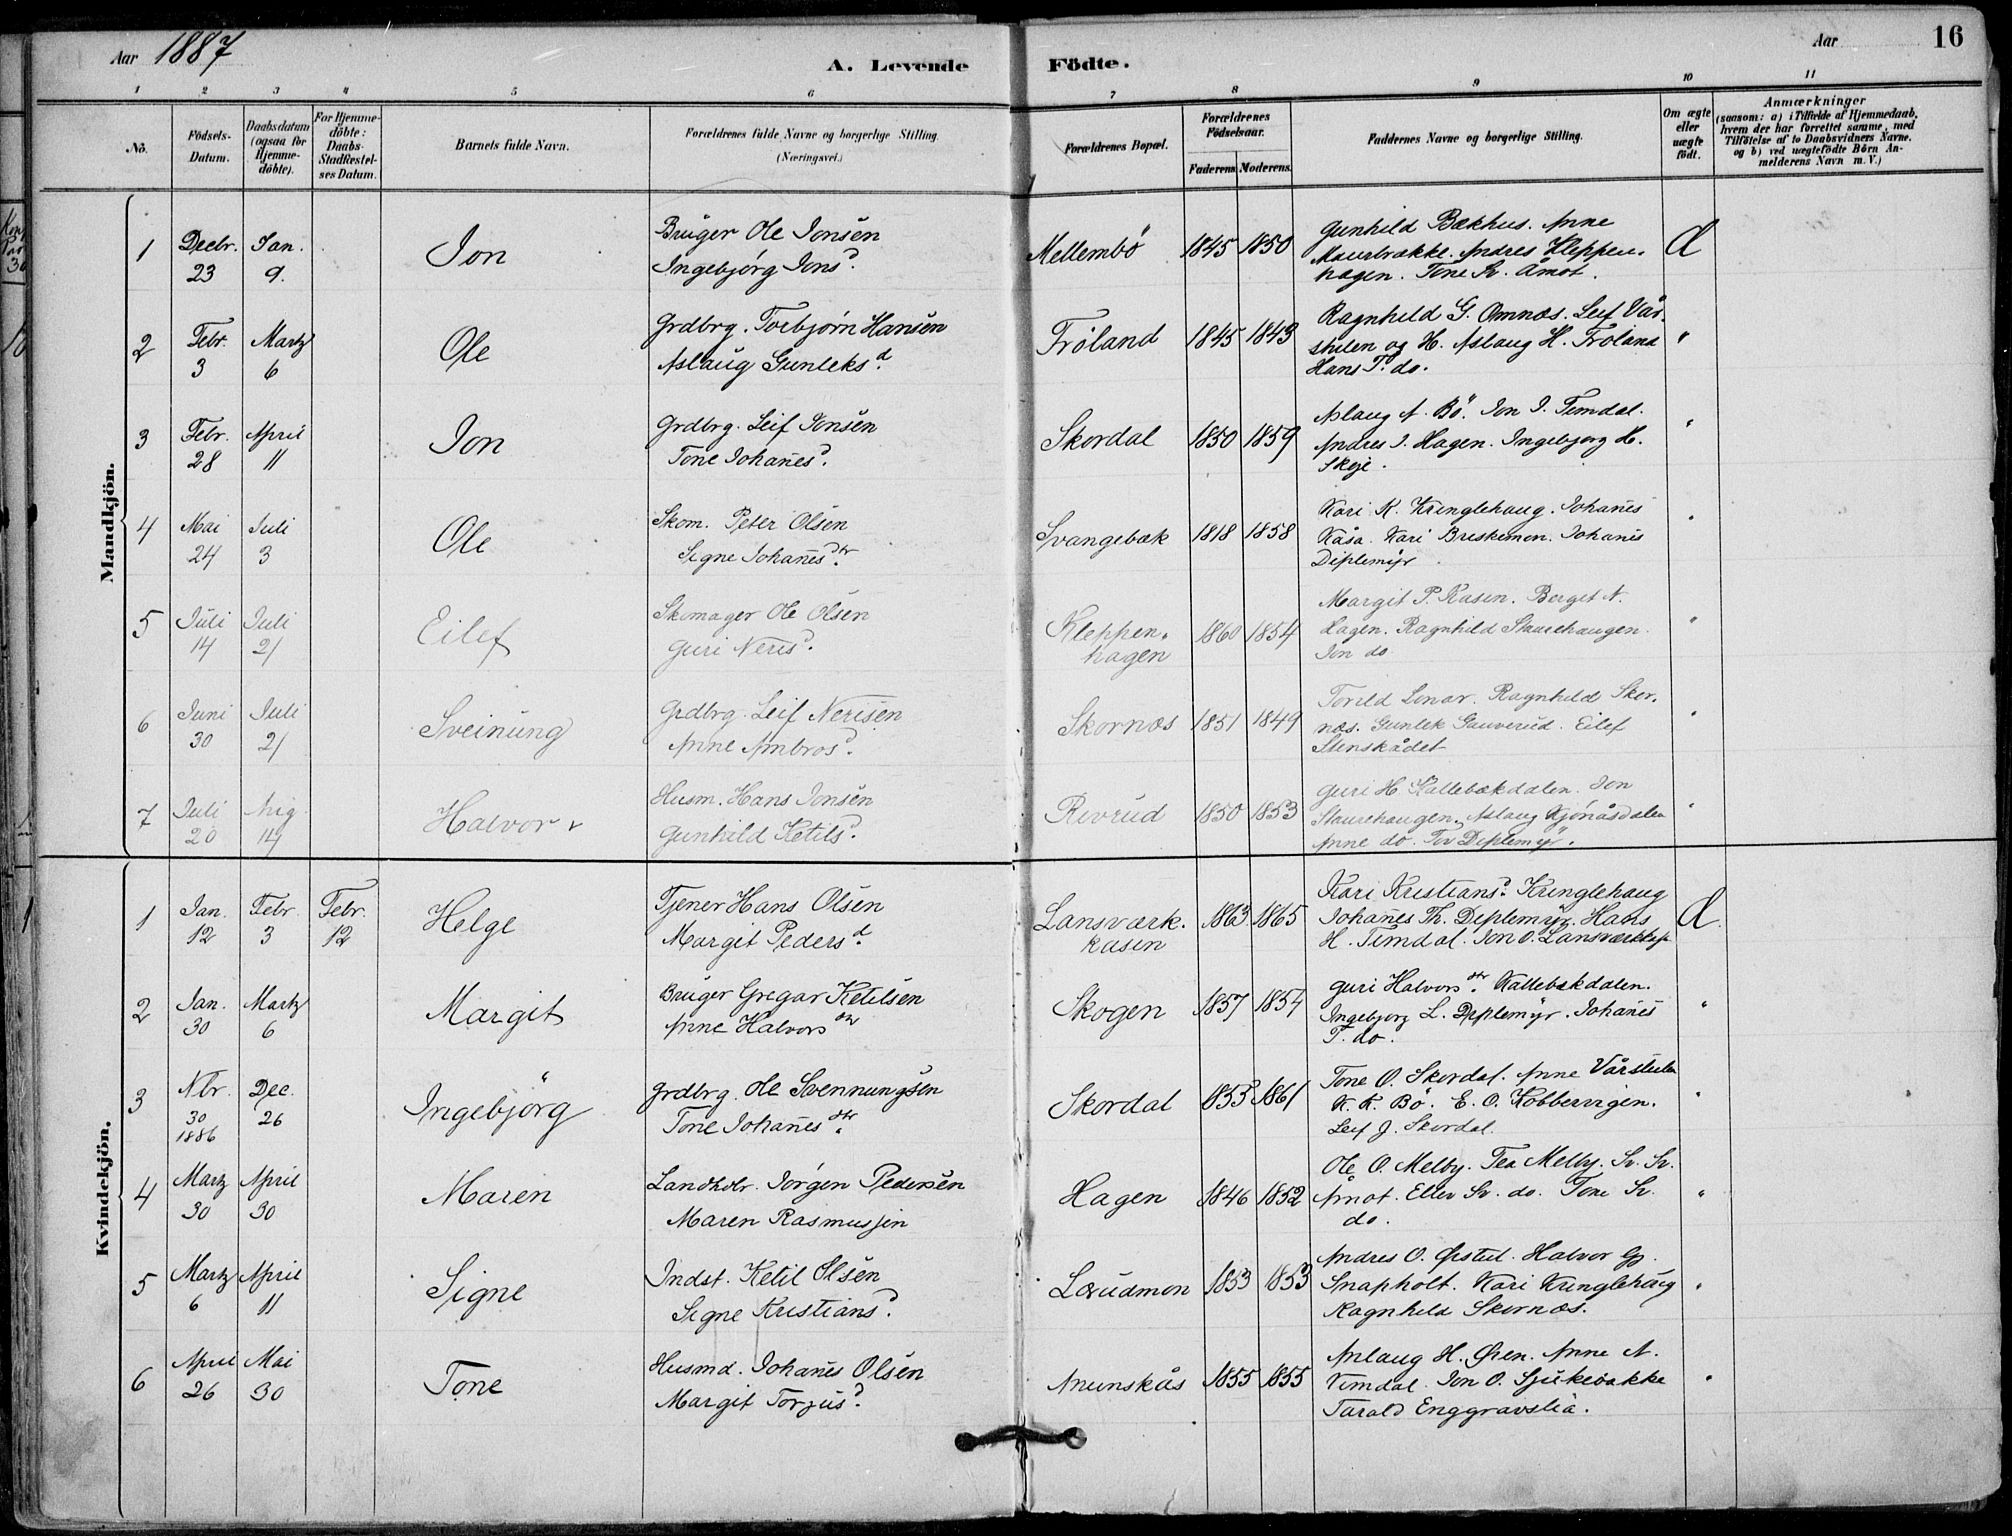 Aar 1887
A. Levende Födte.
Aar 16
1 2 3 4 5 6 7 8 9 10 11
No.
Födsels-Datum.
Daabsdatum (ogsaa for Hjemme-döbte).
For Hjemme-döbte: Daabs-Stadfæstel-ses Datum.
Barnets fulde Navn.
Forældrenes fulde Navne og borgerlige Stilling. (Næringsvei.)
Forældrenes Bopæl.
Forældrenes Födselsaar.
Faderens Moderens.
Faddernes Navne og borgerlige Stilling.
Om ægte eller uægte födt.
Anmærkninger
(saasom: a) i Tilfælde af Hjemmedaab, hvem der har forrettet samme, med Tilföielse af to Daabsvidners Navne. og b) ved uægtefödte Börn Anmelderens Navn m. V.)
Mandkjön.
1 Decbr. 23 Jan. 9. Jon
Brüger Ole Jonsen
Ingebjørg Jonsd.
Mellembö 1845 1850
Gunhild Bækhus. Anne
Maurbrække. Andres Kleppen-
hagen. Tone Sv. Åmot.
2 Febr. 3 Martz 6 Ole
Grdbrg. Torbjørn Hansen
Aslaug Gunleksd.
Frøland 1845 1843
Ragnhild G. Omnæs. Leif Vår-
stulen og H. Aslaug H. Frøland
Hans T. do. "
3 Febr. 28 April 11 Jon
Grdbrg. Leif Jonsen
Tone Johanesd.
Skordal 1850 1859
Aslaug A. Bö. Jon J. Timdal.
Andres J. Hagen. Ingebjorg H.
Skeje. "
4 Mai 24 Juli 3 Ole
Skom. Peter Olsen
Signe Johanesdtr.
Svangebæk 1818 1858
Kari K. Kringlehaug. Johanes
Kåsa. Kari Briskemon. Johanes
Diplemyr "
5 Juli 14 Juli 21 Eilef
Skomager Ole Olsen
Guri Nerisd.
Kleppen-
hagen 1860 1854
Margit P. Kasin. Berget N.
Hagen. Ragnhild Staurehaugen.
Jon do "
6 Juni 30 Juli 21 Sveinung
Grdbrg. Leif Nerisen
Anne Ambrosd.
Skornæs 1851 1849
Torild Lonar. Ragnhild Skor-
næs. Gunlek Gauverud. Eilef
Stenskådet "
7 Juli 20 Aug 14 Halvor
Husm. Hans Jonsen
Gunhild Ketilsd.
Revrud 1850 1853
Guri H. Kallebækdalen. Jon
Staurehaugen. Aslaug Kjønåsdalen
Anne do. Tov Diplemyr. "
Kvindekjön.
1 Jan. 12 Febr. 3 Febr. 12 Helge
Tjener Hans Olsen
Margit Pedersd.
Lansværk-
kasin 1863 1865
Kari Kristiansd. Kringlehaug
Johanes Th. Diplemyr. Hans
H. Timdal. Jon O. Lansværk
2 Jan. 30 Martz 6 Margit
Brüger Gregar Ketilsen
Anne Halvorsdtr
Skogen 1857 1854
Guri Halvorsdtr. Kallebækdalen.
Ingebjorg L. Diplemyr. Johanes
T. do. "
3 Nbr. 30 1886 Dec. 26 Ingebjörg
Grdbrg. Ole Svennungsen
Tone Johanesdtr.
Skordal 1855 1861
Tone O. Skordal. Anne Vårstulen
K. K. Bö. E. O. Kobbervigen.
Leif J. Skordal. "
4 Martz 30 April 30 Maren
Landhdlr. Jørgen Pedersen
Maren Rasmussen
Hagen 1846 1852
Ole O. Melby. Tea Melby. Sv. Sv.
Åmot. Ellev Sv. do. Tone Sv.
do. "
5 Martz 6 April 11 Signe
Indst. Ketil Olsen
Signe Kristiansd.
Løvudmon 1853 1853
Andres O. Ørstul. Halvor G.
Snapholt. Kari Kringlehaug
Ragnhild Skornæs. "
6 April 26 Mai 30 Tone
Husmd. Johanes Olsen
Margit Torjusd.
Anunskås 1855 1855
Anlaug H. Øien. Anne A.
Timdal. Jon O. Sjukebakke
Tarald Enggravslia. "